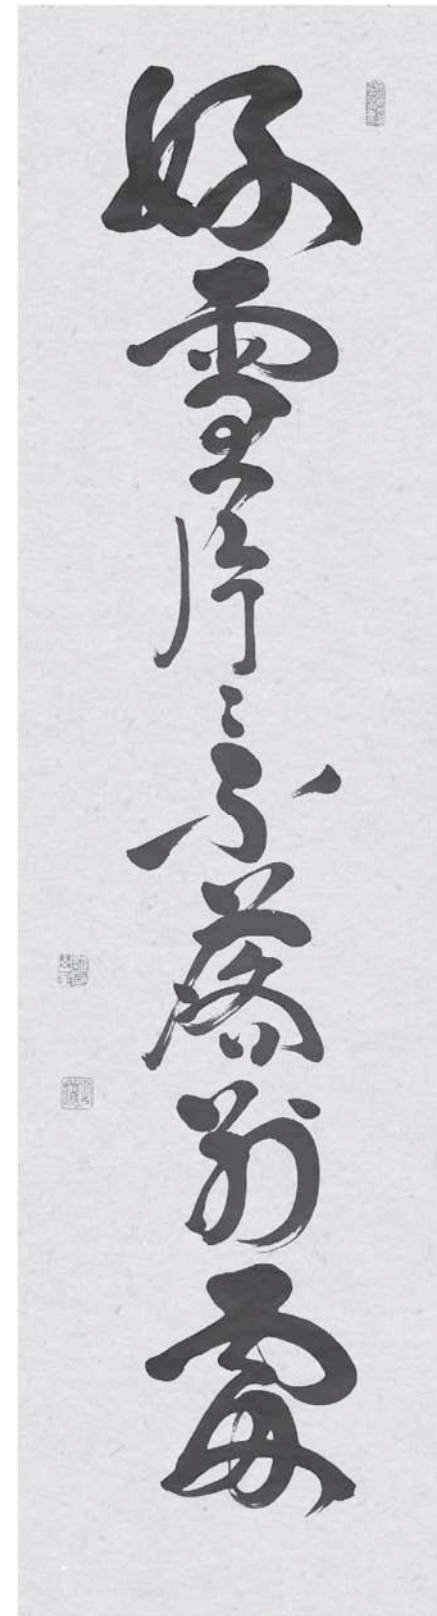 好雪片〻不落別處